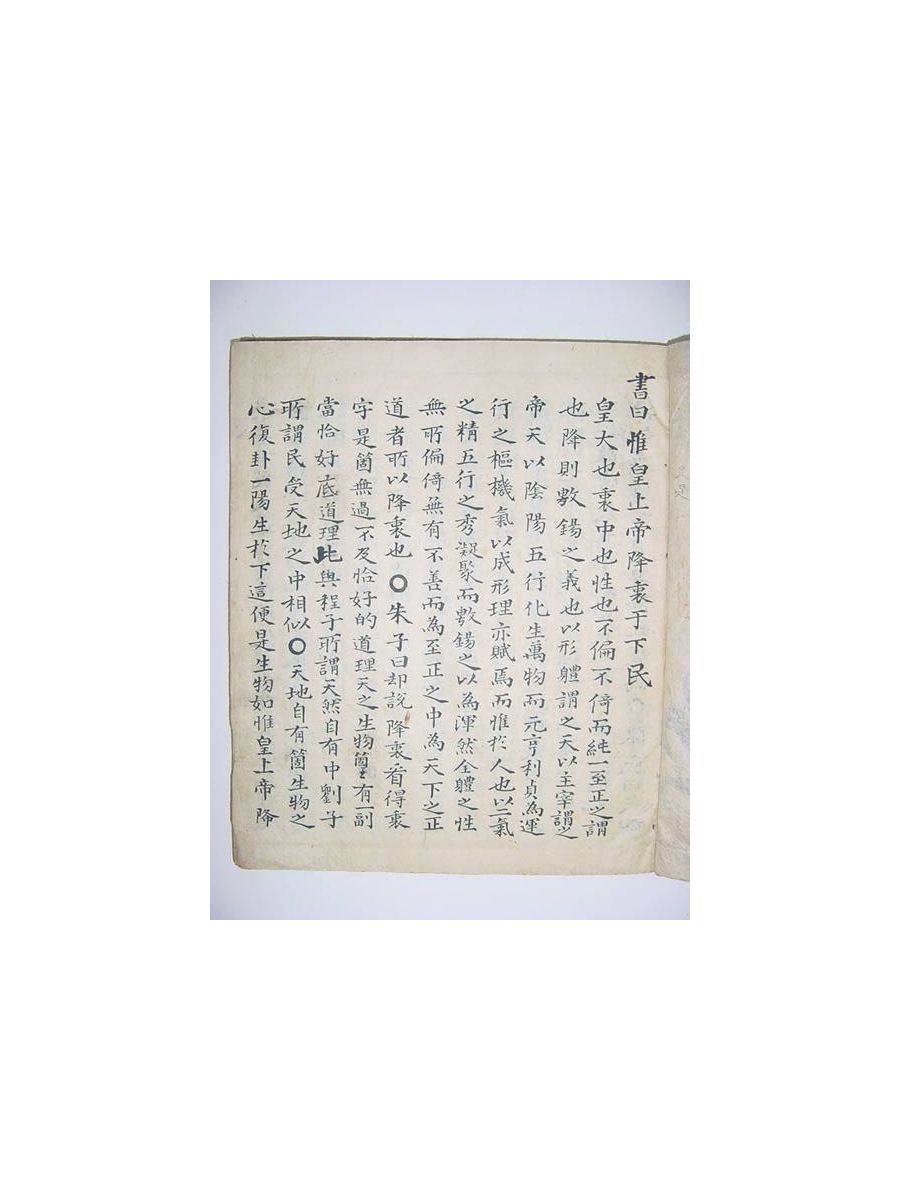 書曰惟皇上帝降衷于下民
皇大也衷中也性也不偏不倚而純一至正之謂
也降則敷錫之義也以形軆謂之天以主宰謂之
帝天以陰陽五行化生萬物而元亨利貞為運
行之樞機氣以成形理亦賦焉而惟於人也以二氣
之精五行之秀凝聚而敷錫之以為渾然全軆之性
無所偏倚無有不善而為至正之中為天下之正
道者所以降衷也〇朱子曰却說降衷看得衷
字是箇無過不及恰好的道理天之生物箇〻有一副
當恰好底道理此與程子所謂天然自有中劉子
所謂民受天地之中相似〇天地自有箇生物之
心復卦一陽生於下這便是生物如惟皇上帝降